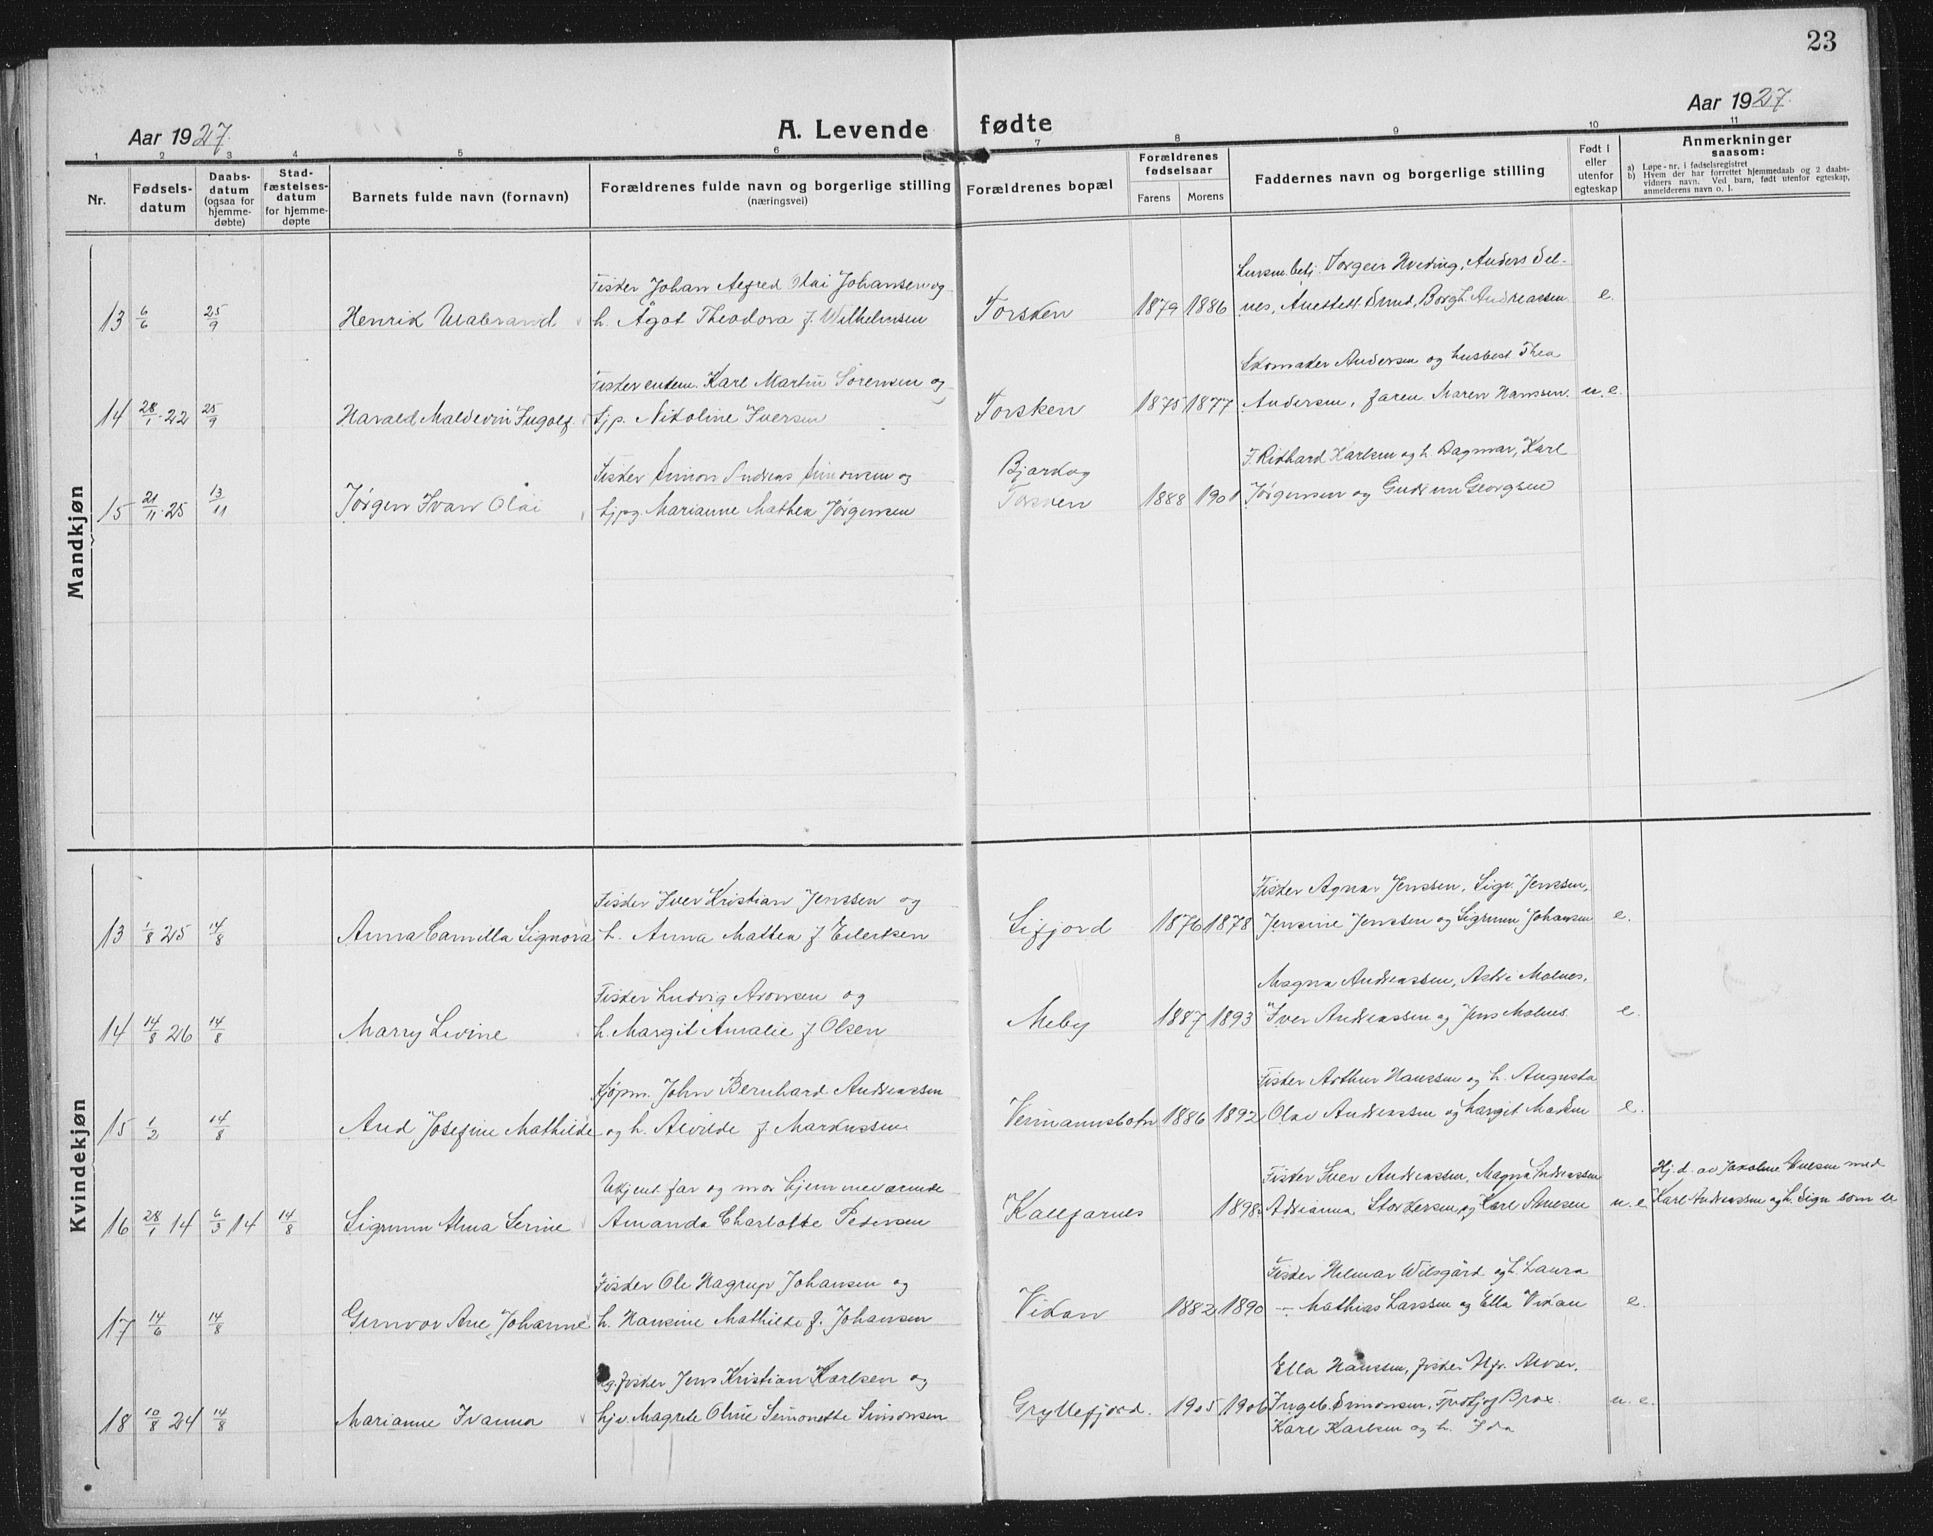 23
Aar 1927.
A. Levende fødte
Aar 1927.
1 2 3 4 5 6 7 8 9 10 11
Nr.
Fødsels-
datum
Daabs-
datum
(ogsaa for
hjemme-
døbte)
Stad-
fæstelses-
datum
for hjemme-
døpte
Barnets fulde navn (fornavn)
Forældrenes fulde navn og borgerlige stilling
(næringsvei)
Forældrenes bopæl
Forældrenes
fødselsaar
Farens Morens
Faddernes navn og borgerlige stilling
Født i
eller
utenfor
egteskap
Anmerkninger
saasom:
a) Løpe-nr. i fødselsregistret
b) Hvem der har forrettet hjemmedaab og 2 daabs-
vidners navn. Ved barn, født utenfor egteskap,
anmelderens navn o. l.
Mandkjøn
Fisker Johan Alfred Olai Johansen og
Jørgen Hveding, Anders Sel-
13 6/6 25/9 Henrik h. Ågot Theodora f. Wilhelmsen Torsken 1879 1886 nes, Borgh. Andreassen e.
Fisker enkem. Karl Martin Sørensen og
Skomaker Andersen og husbest. Thea
14 28/1 22 25/9 Harald Maldevin Ingolf tjp. Nikoline Iversen Torsken 1875 1877 Andersen, Maren Hanssen. u.e.
Fisker Simon Andreas Simonsen og
Bjarkøy
F. Rikhard Karlsen og h. Dagmar, Karl
15 21/11 25 13/11 Jørgen Ivan Olai tjpg. Marianne Mathea Jørgensen Torsken 1888 1901 Jørgensen og Gudrun Georgsen
Kvindekjøn
Fisker Iver Kristian Jenssen og
Fisker Agnar Jenssen, Sigv. Jenssen,
13 1/8 25 14/8 Anna Camella Signora h. Anna Mathea f. Eilertsen Sifjord 1876 1878 Jensine Jenssen og Sigrunn Johansen e.
Fisker Ludvig Aronsen og
Magna Andreassen, Astri Molnes,
14 14/8 26 14/8 Marry Levine h. Margit Amalie f. Olsen Meby 1887 1893 Iver Andreassen og Jens Molnes. e.
Kjøpm. John Bernhard Andreassen
Fisker Arthur Hanssen og h. Augusta
15 1/2 14/8 Aud Josefine Mathilde og h. Alvilde f. Markussen Veimannsbotn 1886 1892 Olav Andreassen og Margit Madsen e.
Ukjent far og mor hjemmeværende
Fisker Iver Andreassen, Magna Andreassen
Hj. d. av Jakoline med
16 28/1 14 6/3 14 14/8 Sigrunn Alma Serine Amanda Charlotte Pedersen Kallfarnes 1898 Adrianna Storkersen og Karl u.e. Karl Andreassen og h. Sign som
Fisker Ole Hagrup Johansen og
Fisker Hilmar Wilsgård og h. Laura
17 14/6 14/8 Gunvor Ane Johanne h. Hansine Mathilde f. Johansen Vikan 1882 1890 – Mathias Larssen og Ella Vikan e.
Ug. fisker Jens Kristian Karlsen og
Ella Hanssen, fisker
18 10/8 24 14/8 Marianne Ivanna hjv Magrete Oline Simonette Simonsen Gryllefjord. 1905 1906 Ingeb. Simonsen, u.e.
Karl Karlsen og h. Ida